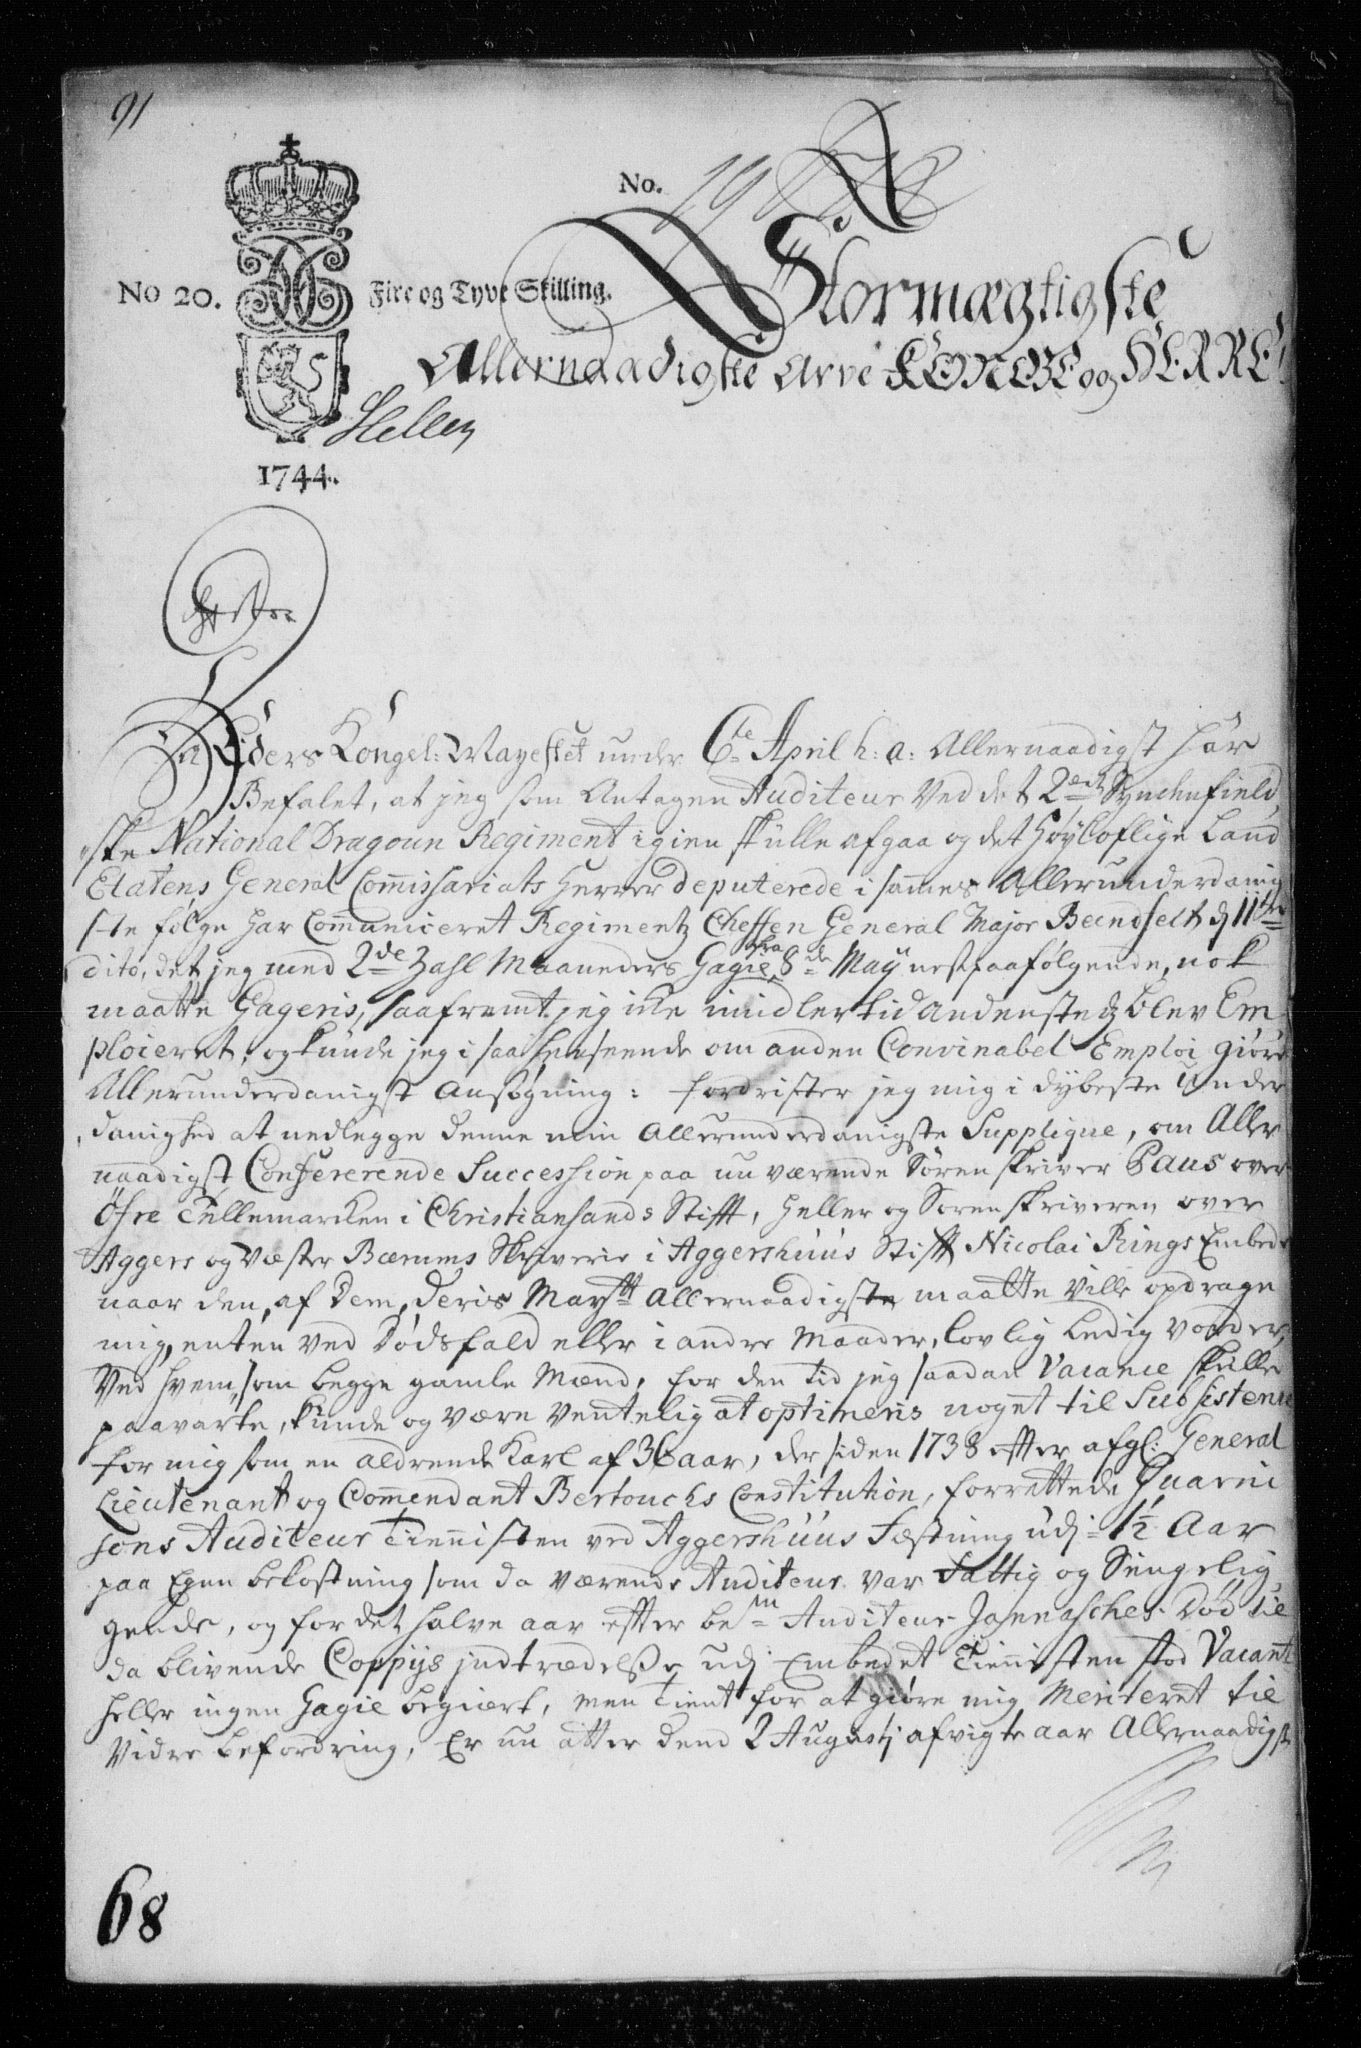 91
No.
No 20.
Fire og Tyve Skilling.
Stormægtigste
Allernaadigste Arve KONGE og HERRE!
Hellen
1744.
Eders Kongel: Mayestet under 6te April h: a: Allernaadigst har
Befalet, at jeg som Antagen Auditeur Ved det 2det Syndenfield
ske National Dragoun Regiment igien skulle afgaa og det Høyloflige Land
Etatens General Commissariats Herrer deputerede i sammes Allerunderdanig
ste følge har Communiceret Regimentz Cheffen General Major Beendfelt d 11te
dito, det jeg med 2de Zahl Maaneders Gagie, fra 8de May nestpaafølgende, nok
maatte Gageris, saafremt jeg icke imidlertid andenstedz blev Em
ploieret; og kunde jeg i saa henseende om anden Convinabel Emploi giøre
Allerunderdanigst Ansøgning: fordrister jeg mig i dybeste Under
danighed at nedlegge denne min Allerunderdanigste Supplique, om Aller
naadigst Confererende Succession paa nu værende Sorenskriver Paus over
Øfre Tellemarcken i Christiansands Stifft, heller og Sorenskriveren over
Aggers og Væster Bærums Skriverie i Aggershuus Stifft Nicolai Rings Embede
naar den, af Dem, Deris Maytt Allernaadigste maatte Ville opdrage
mig, enten ved Dødsfald eller i andre Maader, lovlig ledig vorder,
Ved hvem, som begge gamle Mænd, for den tid jeg saadan Vacance skulle
paavarte, kunde og være Ventelig at optineris noget til Subsistence
for mig som en aldrende Karl af 36 aar, der siden 1738 efter afgl: General
Lieutenant og Commendant Bertouchs Constitution, forrettede Guarni
sons Auditeur Tiennisten ved Aggershuus Fæstning udj 1½ Aar
paa Egen bekostning som da værende Auditeur var Fattig og Sengelig
gende, og for det halve aar efter bem Auditeur Jannasches Død til
da blivende Coppijs indtrædelse udj Embedet Tiennisten stod Vacant
heller ingen Gagie begiert, men Tient for at giøre mig Meriteret til
Vidre befordring, Er nu atter dend 2 Augustj afvigte aar Allernaadigst
68